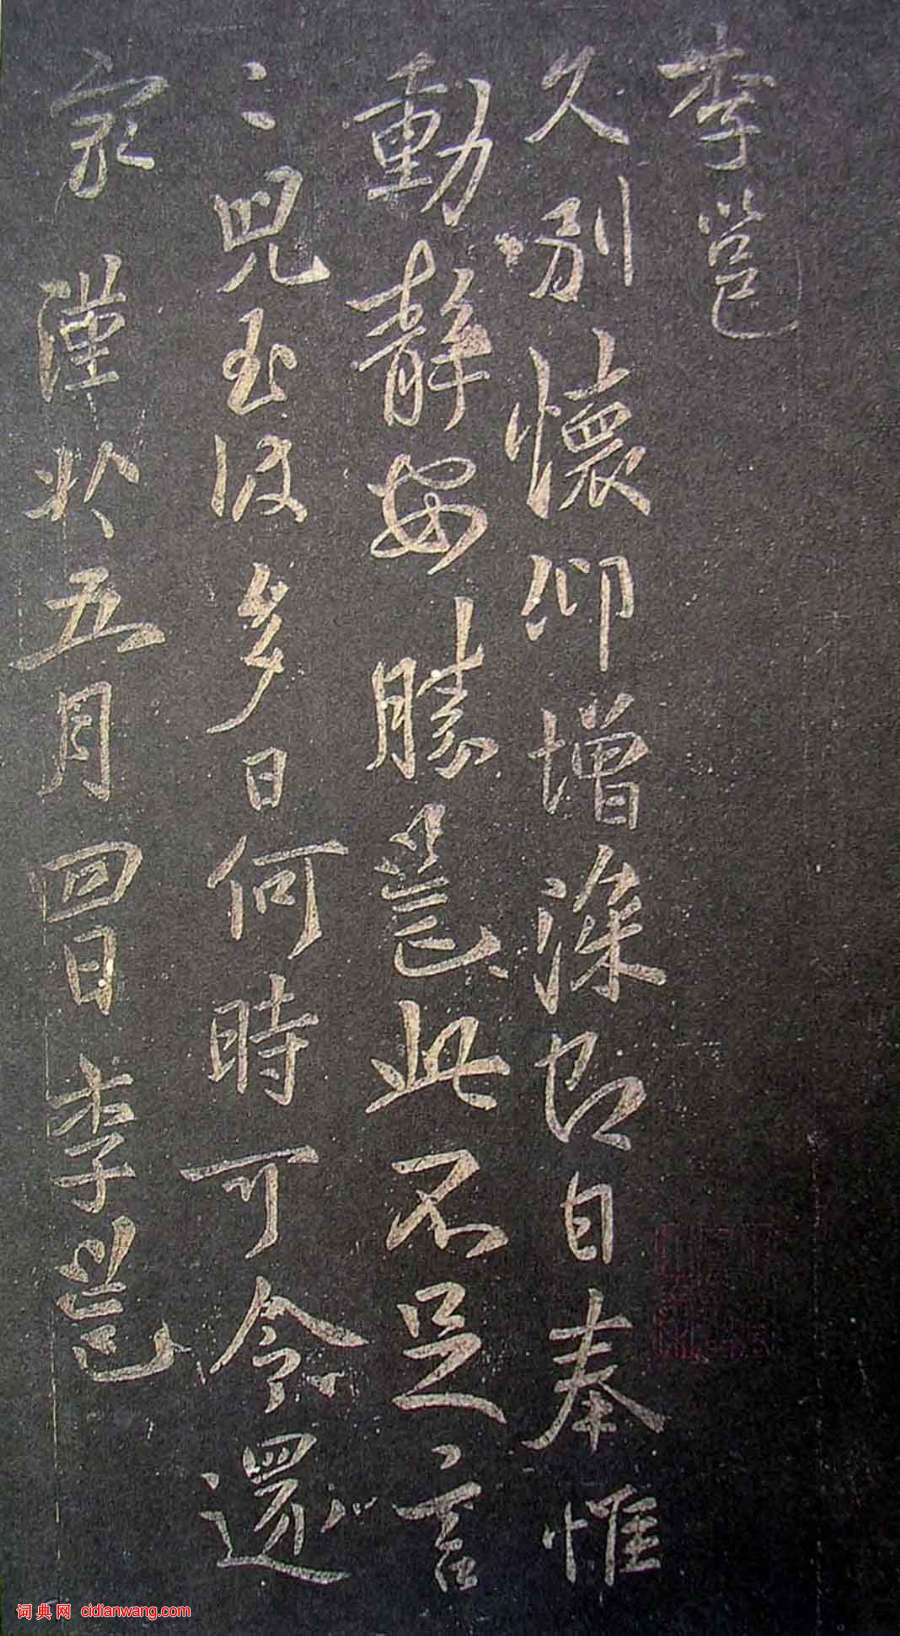 李邕
久別懷仰增深得自奉惟
動靜安勝邕此不足言
〻兒至彼多日何時可令還
家謹狀五月四日李邕
词典网 cidianwang.com